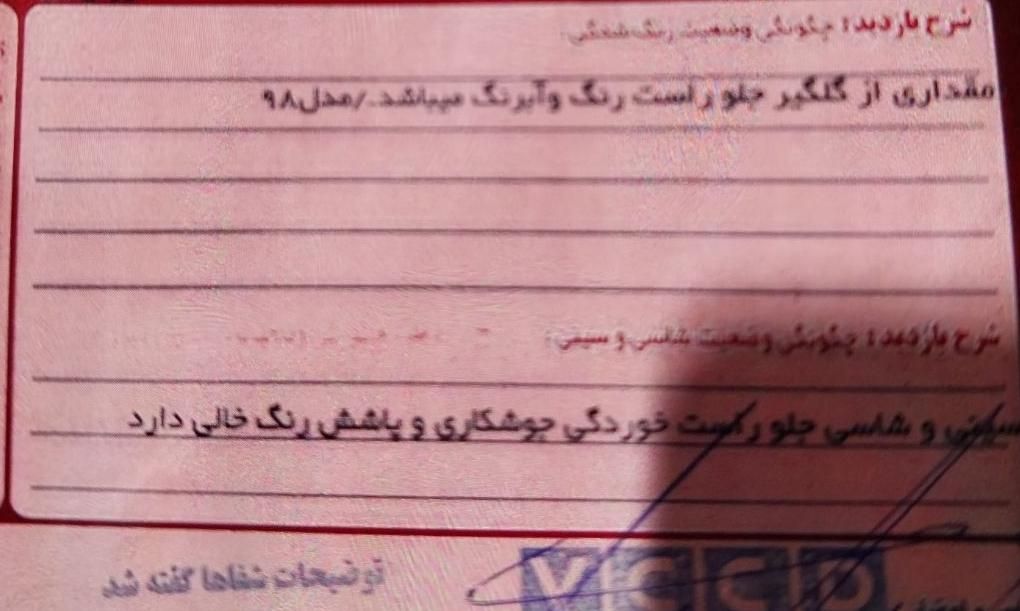 شرح بازدید: چگونگی وضعیت رنگ شدگی:
مقداری از گلگیر جلو راست رنگ وآبرنگ میباشد./مدل۹۸
شرح بازدید: چگونگی وضعیت شاسی و سینی:
سینی و شاسی جلو راست خوردگی جوشکاری و پاشش رنگ خالی دارد
توضیحات شفاها گفته شد